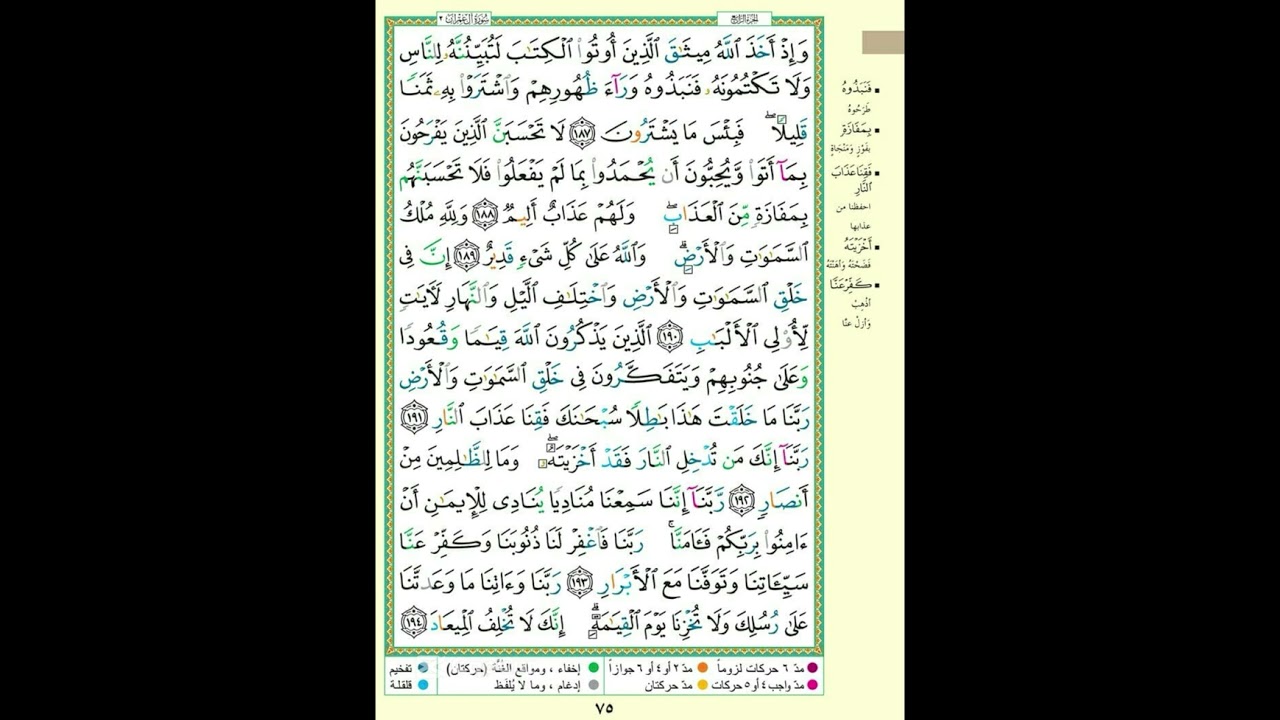 سُورَةُ آلِ عِمْرَانَ ٣
الجزء الرابع
وَإِذْ أَخَذَ ٱللَّهُ مِيثَٰقَ ٱلَّذِينَ أُوتُوا۟ ٱلْكِتَٰبَ لَتُبَيِّنُنَّهُۥ لِلنَّاسِ
وَلَا تَكْتُمُونَهُۥ فَنَبَذُوهُ وَرَآءَ ظُهُورِهِمْ وَٱشْتَرَوْا۟ بِهِۦ ثَمَنًا
قَلِيلًا ۖ فَبِئْسَ مَا يَشْتَرُونَ ١٨٧ لَا تَحْسَبَنَّ ٱلَّذِينَ يَفْرَحُونَ
بِمَآ أَتَوا۟ وَّيُحِبُّونَ أَن يُحْمَدُوا۟ بِمَا لَمْ يَفْعَلُوا۟ فَلَا تَحْسَبَنَّهُم
بِمَفَازَةٍ مِّنَ ٱلْعَذَابِ ۖ وَلَهُمْ عَذَابٌ أَلِيمٌ ١٨٨ وَلِلَّهِ مُلْكُ
ٱلسَّمَٰوَٰتِ وَٱلْأَرْضِ ۗ وَٱللَّهُ عَلَىٰ كُلِّ شَىْءٍ قَدِيرٌ ١٨٩ إِنَّ فِى
خَلْقِ ٱلسَّمَٰوَٰتِ وَٱلْأَرْضِ وَٱخْتِلَٰفِ ٱلَّيْلِ وَٱلنَّهَارِ لَءَايَٰتٍ
لِّأُو۟لِى ٱلْأَلْبَٰبِ ١٩٠ ٱلَّذِينَ يَذْكُرُونَ ٱللَّهَ قِيَٰمًا وَقُعُودًا
وَعَلَىٰ جُنُوبِهِمْ وَيَتَفَكَّرُونَ فِى خَلْقِ ٱلسَّمَٰوَٰتِ وَٱلْأَرْضِ
رَبَّنَا مَا خَلَقْتَ هَٰذَا بَٰطِلًا سُبْحَٰنَكَ فَقِنَا عَذَابَ ٱلنَّارِ ١٩١
رَبَّنَآ إِنَّكَ مَن تُدْخِلِ ٱلنَّارَ فَقَدْ أَخْزَيْتَهُۥ ۖ وَمَا لِلظَّٰلِمِينَ مِنْ
أَنصَارٍ ١٩٢ رَّبَّنَآ إِنَّنَا سَمِعْنَا مُنَادِيًا يُنَادِى لِلْإِيمَٰنِ أَنْ
ءَامِنُوا۟ بِرَبِّكُمْ فَـَٔامَنَّا ۚ رَبَّنَا فَٱغْفِرْ لَنَا ذُنُوبَنَا وَكَفِّرْ عَنَّا
سَيِّـَٔاتِنَا وَتَوَفَّنَا مَعَ ٱلْأَبْرَارِ ١٩٣ رَبَّنَا وَءَاتِنَا مَا وَعَدتَّنَا
عَلَىٰ رُسُلِكَ وَلَا تُخْزِنَا يَوْمَ ٱلْقِيَٰمَةِ ۗ إِنَّكَ لَا تُخْلِفُ ٱلْمِيعَادَ ١٩٤
فَنَبَذُوهُ
طَرَحُوهُ
بِمَفَازَةٍ
بِفَوْزٍ وَمَنْجَاةٍ
فَقِنَا عَذَابَ
ٱلنَّارِ
احفظنا من
عذابها
أَخْزَيْتَهُ
فَضَحْتَهُ وَأَهَنْتَهُ
كَفِّرْ عَنَّا
أَذْهِبْ
وَأَزِلْ عَنَّا
مدّ ٦ حركات لزوماً
مدّ ٢ أو ٤ أو ٦ جوازاً
إخفاء ، ومواقع الغُنَّة (حركتان)
تفخيم
مدّ واجب ٤ أو ٥ حركات
مدّ حركتان
إدغام ، وما لا يُلفَظ
قلقلة
٧٥